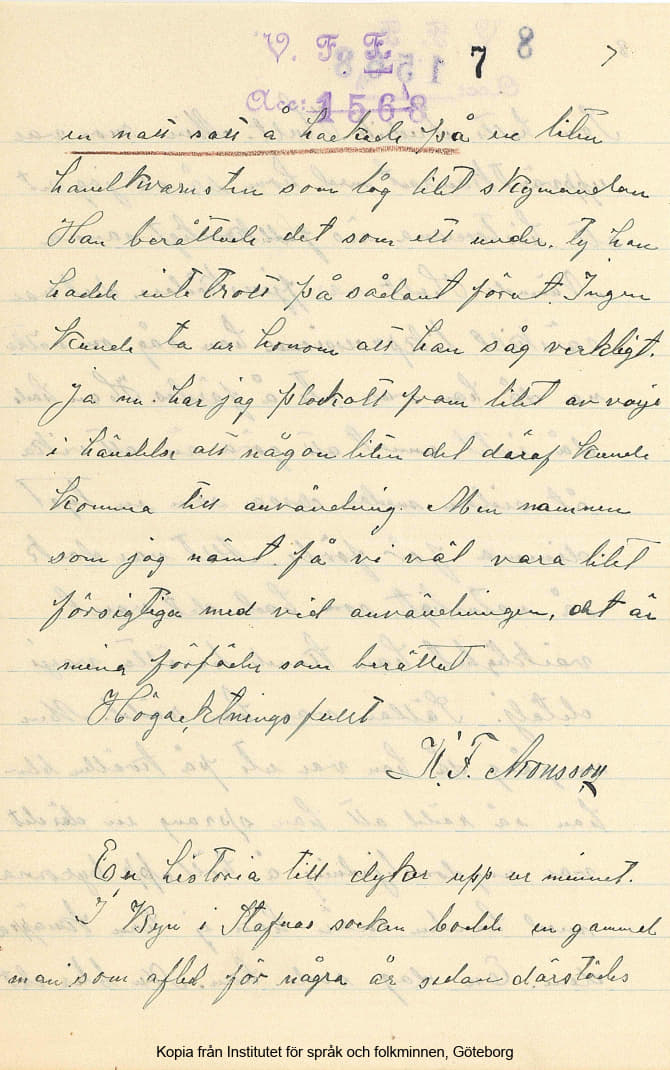 V. F. F. 7 8 7
Acc: 1568
en natt satt å hackade på en liten
handkvarnsten som låg litet skymundan
Han berättade det som ett under, ty han
hadde inte trott på sådant förut. Ingen
kunde ta ur honom att han såg verkligt.
Ja nu har jag plockatt fram litet av varje
i händelse att någon liten del däraf kunde
komma till användning. Men namnen
som jag nämt få vi väl vara litet
försigtiga med vid användningen, det är
mina förfäder som berättat
Högaktningsfullt
K. F. Aronsson
En historia till dyker upp ur minnet.
I Byn i socken bodde en gammel
man som afled för några år sedan därstädes
Kopia från Institutet för språk och folkminnen, Göteborg